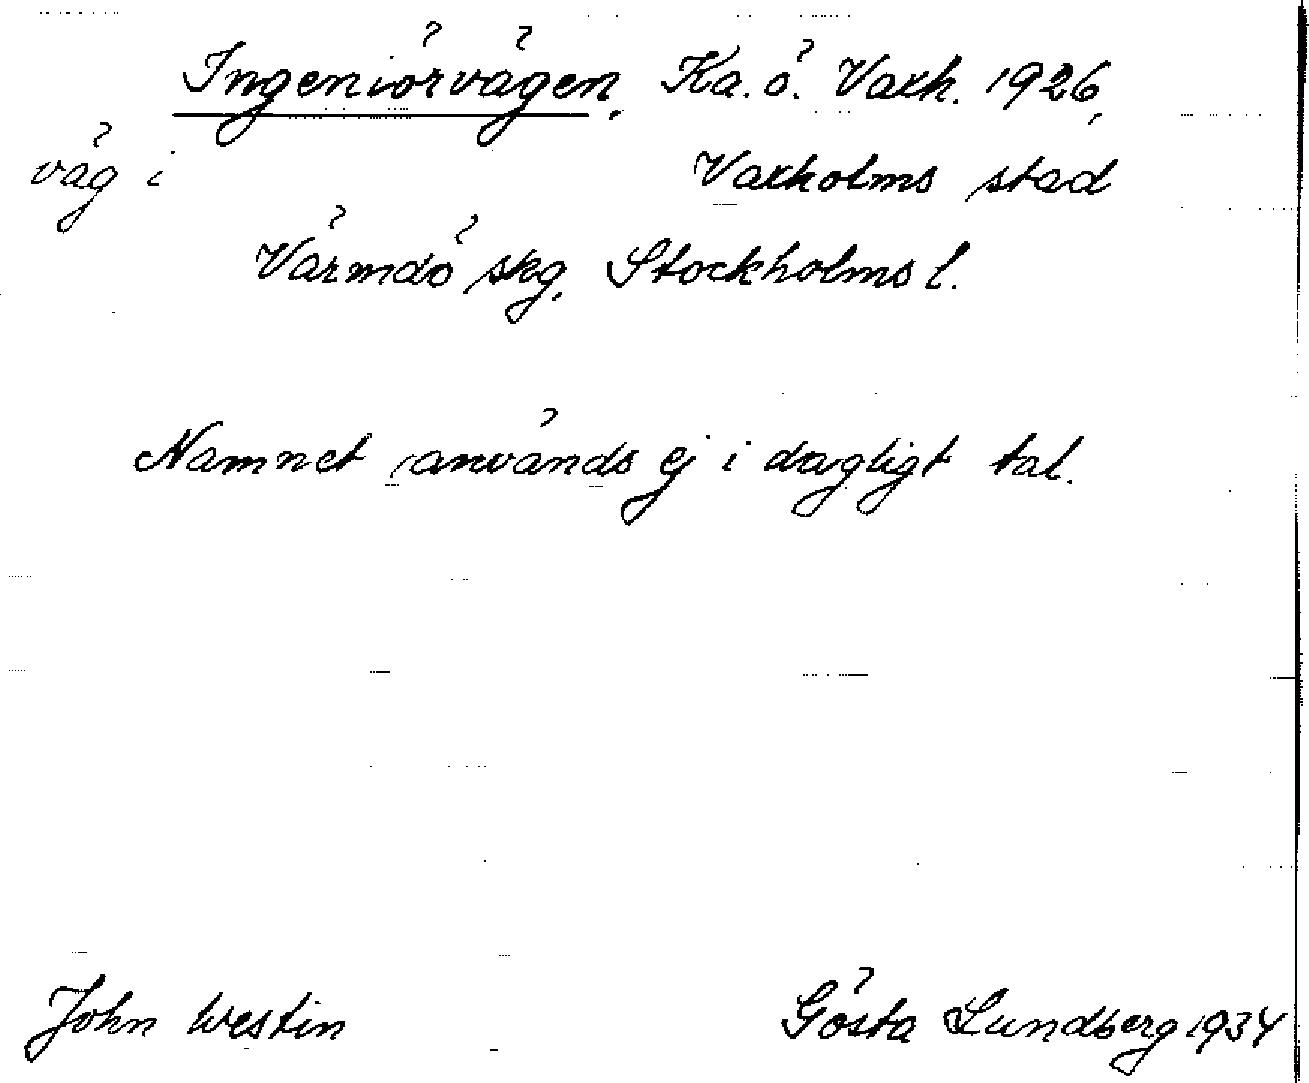 Ingeniörvägen, Ka. ö. Vaxh. 1926,
väg i Vaxholms stad
Värmdö skg, Stockholms l.
Namnet används ej i dagligt tal.
John Westin Gösta Lundberg 1934